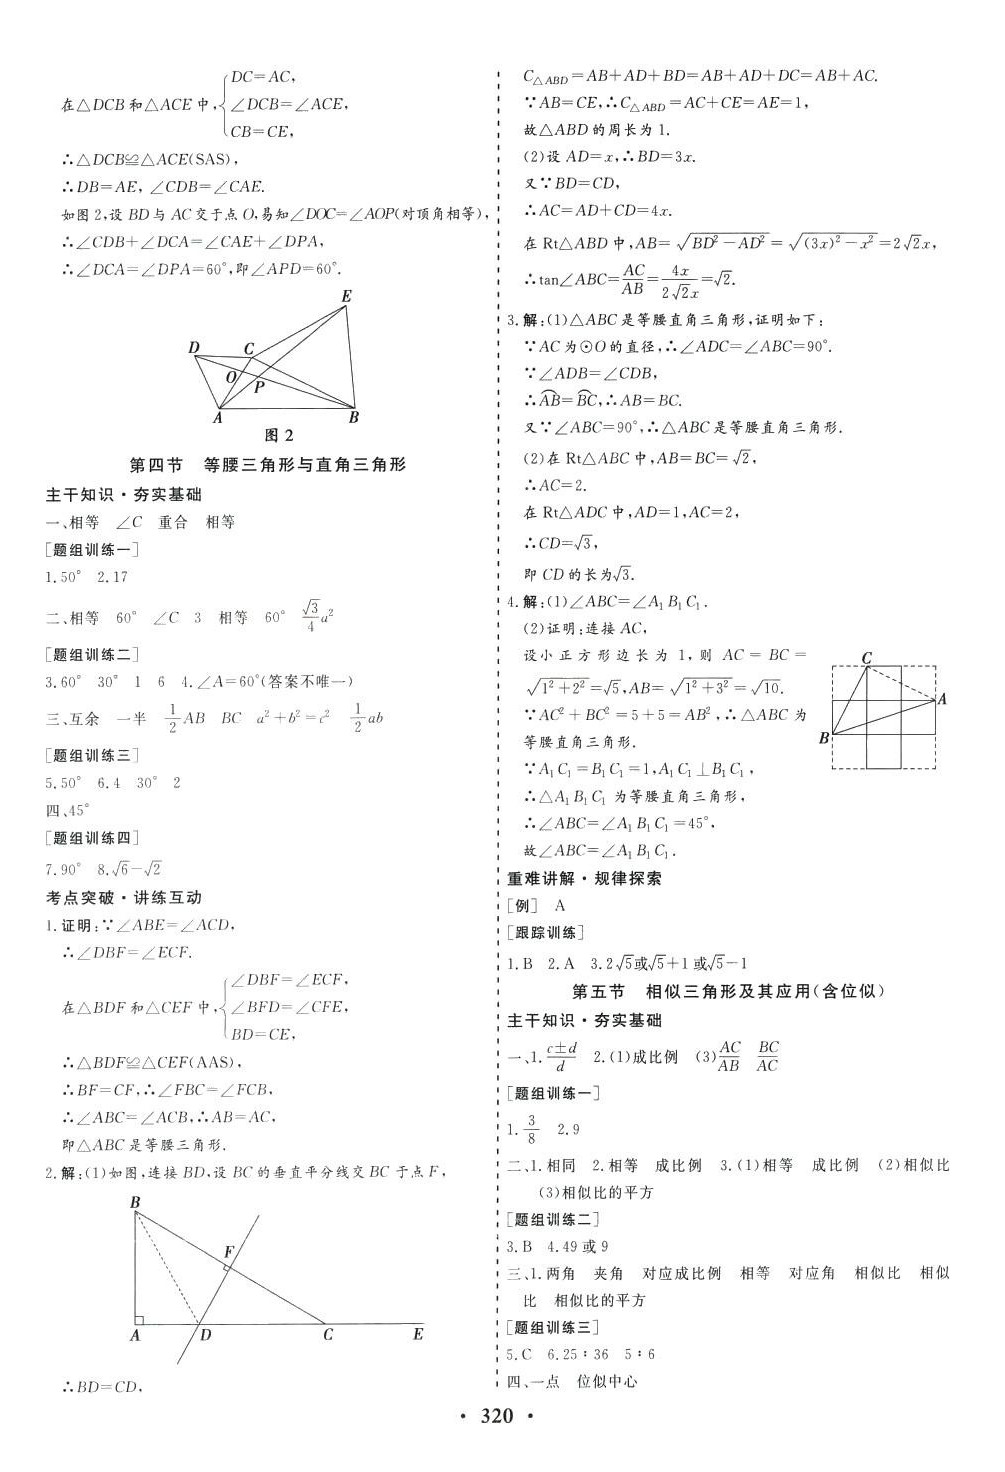 DC=AC,
在△DCB和△ACE中,∠DCB=∠ACE,
CB=CE,
∴△DCB≌△ACE(SAS),
∴DB=AE,∠CDB=∠CAE.
如图2,设BD与AC交于点O,易知∠DOC=∠AOP(对顶角相等),
∴∠CDB+∠DCA=∠CAE+∠DPA,
∴∠DCA=∠DPA=60°,即∠APD=60°.
E
D C
O P
A B
图2
第四节 等腰三角形与直角三角形
主干知识·夯实基础
一、相等 ∠C 重合 相等
[题组训练一]
1.50° 2.17
二、相等 60° ∠C 3 相等 60° √3/4 a²
[题组训练二]
3.60° 30° 1 6 4.∠A=60°(答案不唯一)
三、互余 一半 1/2 AB BC a²+b²=c² 1/2 ab
[题组训练三]
5.50° 6.4 30° 2
四、45°
[题组训练四]
7.90° 8.√6-√2
考点突破·讲练互动
1.证明:∵∠ABE=∠ACD,
∴∠DBF=∠ECF.
∠DBF=∠ECF,
在△BDF和△CEF中,∠BFD=∠CFE,
BD=CE,
∴△BDF≌△CEF(AAS),
∴BF=CF,∴∠FBC=∠FCB,
∴∠ABC=∠ACB,∴AB=AC,
即△ABC是等腰三角形.
2.解:(1)如图,连接BD,设BC的垂直平分线交BC于点F,
B
F
A D C E
∴BD=CD,
C△ABD=AB+AD+BD=AB+AD+DC=AB+AC.
∵AB=CE,∴C△ABD=AC+CE=AE=1,
故△ABD的周长为1.
(2)设AD=x,∴BD=3x.
又∵BD=CD,
∴AC=AD+CD=4x.
在Rt△ABD中,AB=√(BD²-AD²)=√((3x)²-x²)=2√2x,
∴tan∠ABC=AC/AB=4x/2√2x=√2.
3.解:(1)△ABC是等腰直角三角形,证明如下:
∵AC为⊙O的直径,∴∠ADC=∠ABC=90°.
∵∠ADB=∠CDB,
∴A͡B=B͡C,∴AB=BC.
又∵∠ABC=90°,∴△ABC是等腰直角三角形.
(2)在Rt△ABC中,AB=BC=√2,
∴AC=2.
在Rt△ADC中,AD=1,AC=2,
∴CD=√3,
即CD的长为√3.
4.解:(1)∠ABC=∠A₁B₁C₁.
(2)证明:连接AC,
设小正方形边长为1,则AC=BC=
√(1²+2²)=√5,AB=√(1²+3²)=√10.
∵AC²+BC²=5+5=AB²,∴△ABC为
等腰直角三角形.
∵A₁C₁=B₁C₁=1,A₁C₁⊥B₁C₁,
∴△A₁B₁C₁为等腰直角三角形,
∴∠ABC=∠A₁B₁C₁=45°,
故∠ABC=∠A₁B₁C₁.
C
A
B
重难讲解·规律探索
[例] A
[跟踪训练]
1.B 2.A 3.2√5或√5+1或√5-1
第五节 相似三角形及其应用(含位似)
主干知识·夯实基础
一、1.c±d/d 2.(1)成比例 (3)AC/AB BC/AC
[题组训练一]
1.3/8 2.9
二、1.相同 2.相等 成比例 3.(1)相等 成比例 (2)相似比
(3)相似比的平方
[题组训练二]
3.B 4.49或9
三、1.两角 夹角 对应成比例 相等 对应角 相似比 相似
比 相似比的平方
[题组训练三]
5.C 6.25∶36 5∶6
四、一点 位似中心
· 320 ·